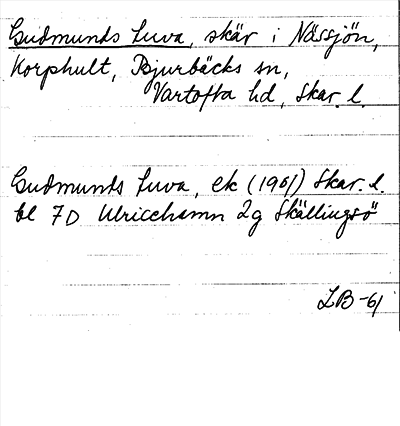 Gudmunds Luva, skär i Nässjön,
Korphult, Bjurbäcks sn,
Vartofta hd, Skar. l.
Gudmunds Luva, ek (1961) Skar. l.
bl 7D Ulricehamn 2g Skällingsö
LB-61